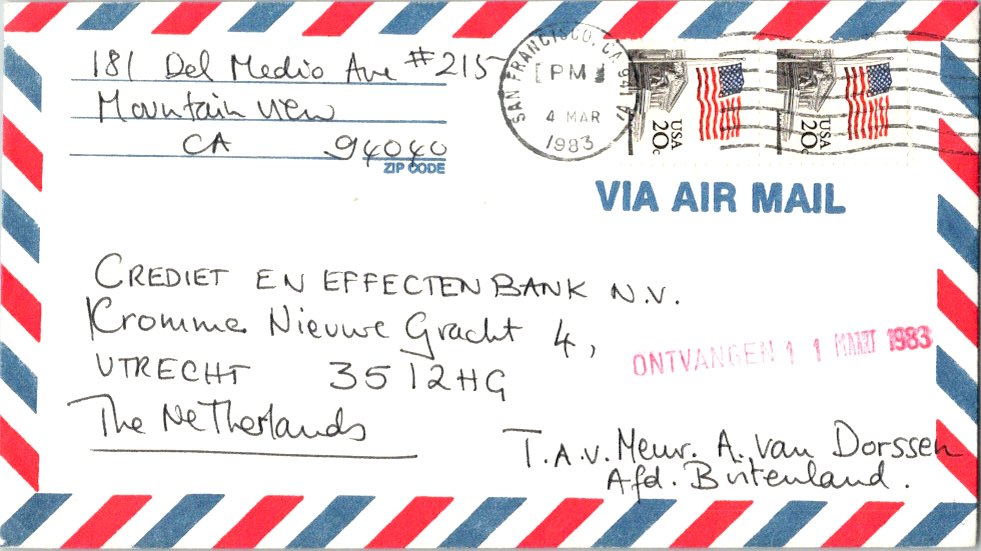 181 Del Medio Ave #215
Mountain View
CA 94040
ZIP CODE
SAN FRANCISCO, CA 941
PM
4 MAR
1983
USA
20c
USA
20c
VIA AIR MAIL
CREDIET EN EFFECTEN BANK N.V.
Kromme Nieuwe Gracht 4,
UTRECHT 3512HG
The Netherlands
ONTVANGEN 11 MAART 1983
T.A.V. Meur. A. van Dorssen
Afd. Butenland.